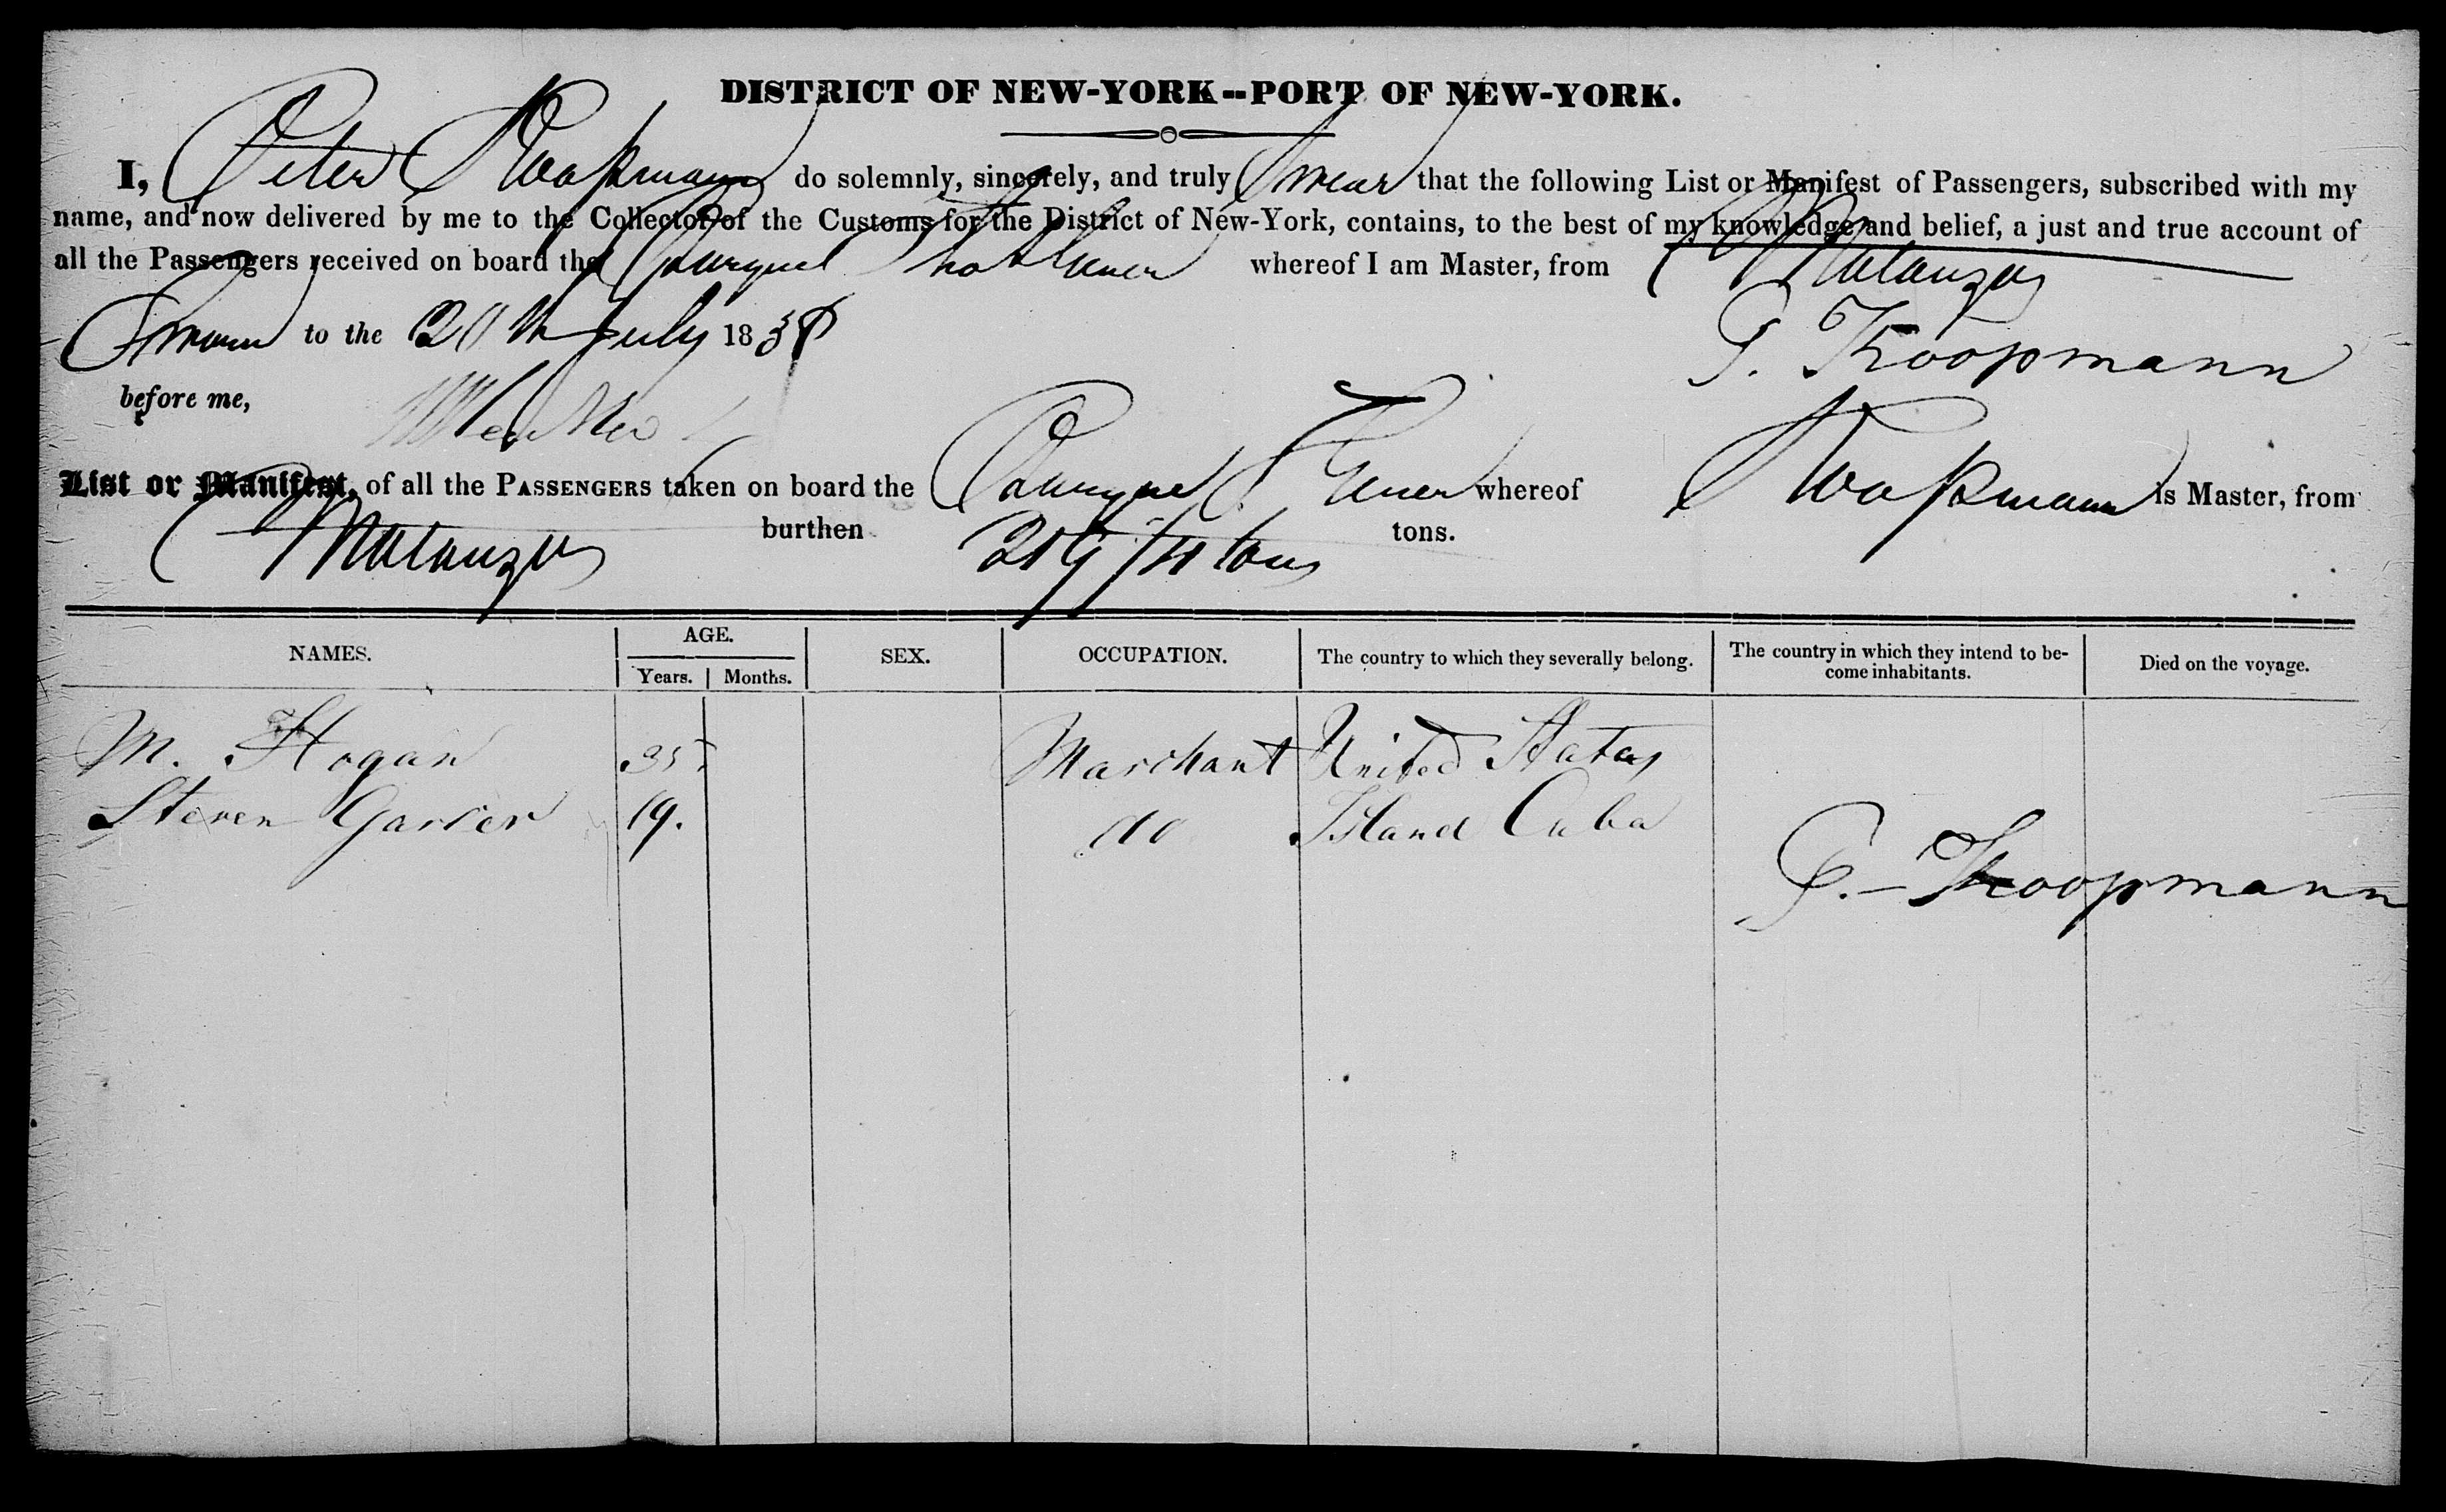 DISTRICT OF NEW-YORK--PORT OF NEW-YORK.
I, Peter Koopmann do solemnly, sincerely, and truly swear that the following List or Manifest of Passengers, subscribed with my
name, and now delivered by me to the Collector of the Customs for the District of New-York, contains, to the best of my knowledge and belief, a just and true account of
all the Passengers received on board the whereof I am Master, from Matanzas
Sworn to the 20th July 1838
P. Koopmann
before me,
List or Manifest, of all the PASSENGERS taken on board the whereof Koopmann is Master, from
Matanzas burthen tons tons.
NAMES. AGE. SEX. OCCUPATION. The country to which they severally belong. The country in which they intend to be-
come inhabitants. Died on the voyage.
Years. Months.
M. Hogan 35. Marchant United States
Steven 19. do Island Cuba
P. - Koopmann